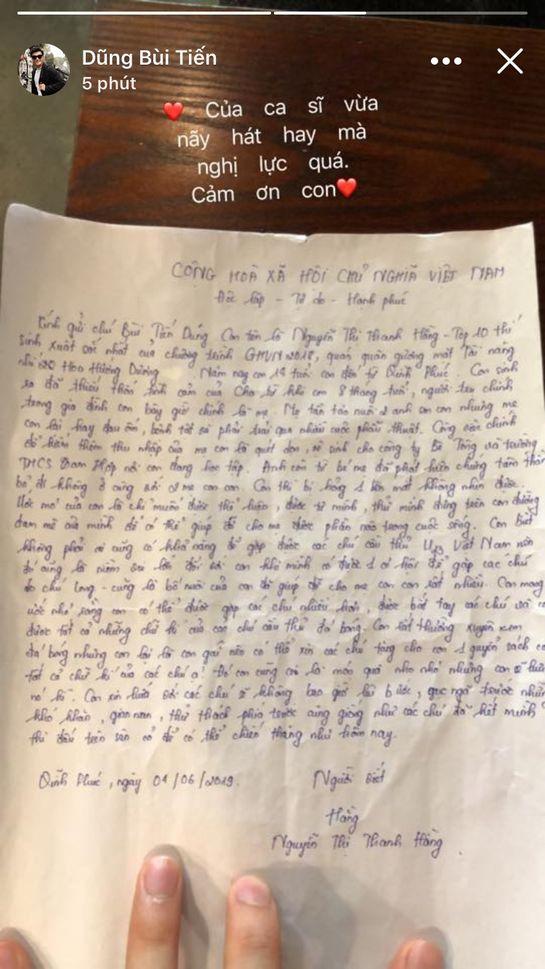 Dũng Bùi Tiến
5 phút
Của ca sĩ vừa
nãy hát hay mà
nghị lực quá.
Cảm ơn con
CỘNG HOÀ XÃ HỘI CHỦ NGHĨA VIỆT NAM
Độc lập - Tự do - Hạnh phúc
Kính gửi chú Bùi Tiến Dũng Con tên là Nguyễn Thị Thanh Hằng - Top 10 thí
sinh xuất sắc nhất của chương trình GHVN 2018, quán quân gương mặt Tài năng
nhí Hoa Hướng Dương. Năm nay con 14 tuổi, con đến từ Phúc. Con sinh
ra đã thiếu thốn tình cảm của Cha từ khi con 8 tháng tuổi, người trụ chính
trong gia đình con bây giờ chính là mẹ. Mẹ tần tảo nuôi 2 anh em con nhưng mẹ
con lại hay đau ốm, bệnh tật và phải trải qua nhiều cuộc phẫu thuật. Công việc chính
để kiếm thêm thu nhập của mẹ con là quét dọn, vệ sinh cho công ty Bê Tông và trường
THCS nơi con đang học tập. Anh con từ bé mẹ đã phát hiện chứng tâm thần
bố đi không ở cùng với 2 mẹ con con. Con thì bị hỏng 1 bên mắt không nhìn được.
Ước mơ của con là chỉ muốn được thể hiện, được tự mình, thử mình đứng trên con đường
đam mê của mình để có thể giúp đỡ cho mẹ được phần nào trong cuộc sống. Con biết
không phải ai cũng có khả năng để gặp được các chú cầu thủ U23 Việt Nam nên
đó cũng là niềm vui lớn đối với con khi mình có được 1 cơ hội để gặp các chú
do chú Long - cũng là bố nuôi của con đã giúp đỡ cho mẹ con con rất nhiều. Con mong
ước nhỏ rằng con có thể được gặp các chú nhiều hơn, được bắt tay các chú và có
được tất cả những chữ kí của các chú cầu thủ đá bóng. Con rất thường xuyên xem
đá bóng nhưng con lại là con gái nên có thể xin các chú tặng cho con 1 quyển sách có
tất cả chữ kí của các chú ạ! Đó con cũng coi là món quà nho nhỏ nhưng con sẽ
nó kĩ. Con xin hứa với các chú sẽ không bao giờ lùi bước, gục ngã trước những
khó khăn, gian nan, thử thách phía trước cũng giống như các chú đã hết mình
thi đấu trên sân cỏ để có thể chiến thắng như hôm nay.
Phúc, ngày 01/06/2019. Người viết
Hằng
Nguyễn Thị Thanh Hằng